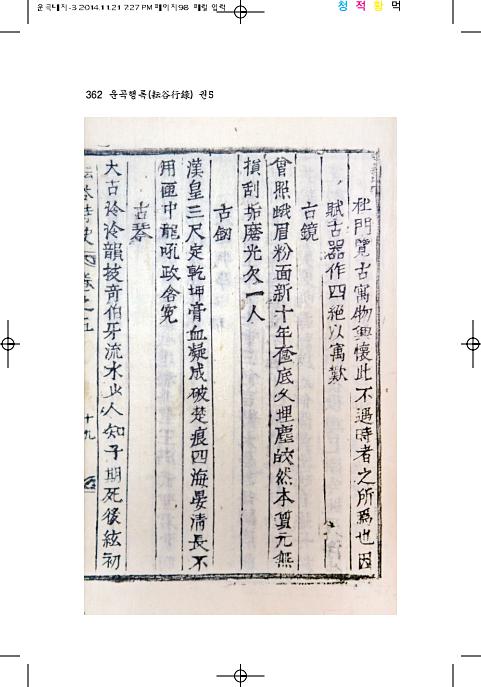 윤곡내지-3 2014.11.21 7:27 PM 페이지98
청 적 황 먹
362 운곡행록(耘谷行錄) 권5
杜門覽古寓物興懷此不遇時者之所爲也因
賦古器作四絶以寓歎
古鏡
曾照峨眉粉面新十年奩底久埋塵皎然本質元無
損刮垢磨光欠一人
古劒
漢皇三尺定乾坤膏血凝成破楚痕四海晏淸長不
用匣中龍吼政含寃
古琴
大古泠泠韻技奇伯牙流水少人知子期死後絃初
卷之五
十九